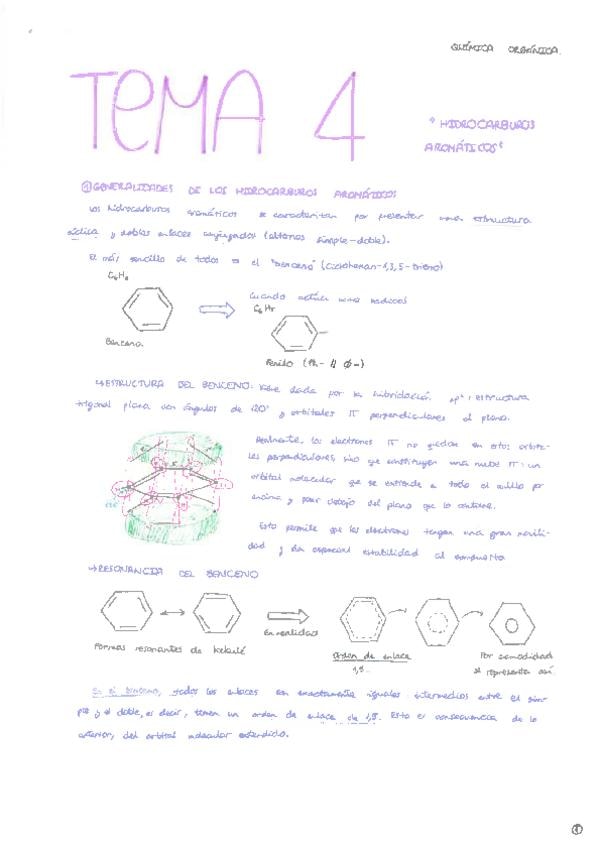 QUÍMICA ORGÁNICA.
TEMA 4
"HIDROCARBUROS
AROMÁTICOS"
① GENERALIDADES DE LOS HIDROCARBUROS AROMÁTICOS
Los hidrocarburos aromáticos se caracterizan por presentar una estructura
cíclica y dobles enlaces conjugados (alternos simple-doble).
El más sencillo de todos es el "benceno" (ciclohexan-1,3,5-trieno)
C6H6
Cuando actúa como radical
C6H5
Benceno.
Fenilo (Ph- ó Ø-)
↳ESTRUCTURA DEL BENCENO: Viene dada por la hibridación sp²: estructura
trigonal plana con ángulos de 120° y orbitales π perpendiculares al plano.
Realmente, los electrones π no quedan en estos orbita-
les perpendiculares, sino que constituyen una nube π: un
orbital molecular que se extiende a todo el anillo por
encima y por debajo del plano que lo contiene.
Esto permite que los electrones tengan una gran movili-
dad y dan especial estabilidad al compuesto
↳RESONANCIA DEL BENCENO
En realidad
Formas resonantes de Kekulé
Orden de enlace
1,5.
Por comodidad
se representa así.
En el benceno, todos los enlaces son exactamente iguales: intermedios entre el sim-
ple y el doble, es decir, tienen un orden de enlace de 1,5. Esto es consecuencia de lo
anterior, del orbital molecular extendido.
①